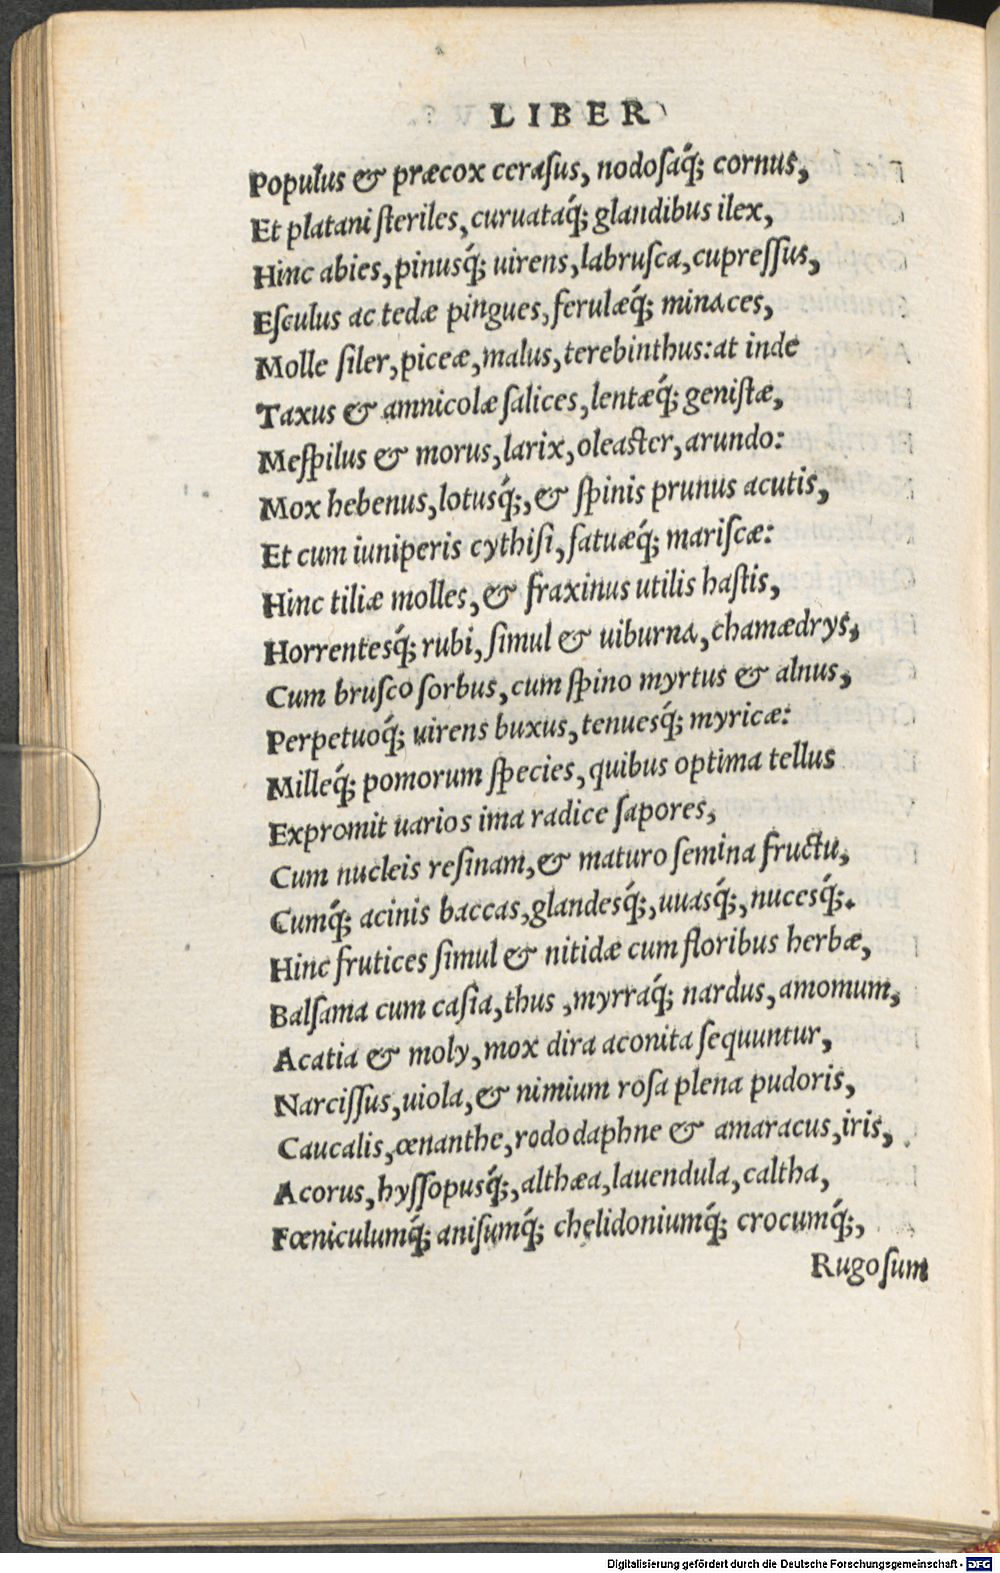 LIBER
Populus & præcox cerasus, nodosaq́; cornus,
Et platani steriles, curuataq́; glandibus ilex,
Hinc abies, pinusq́; uirens, labrusca, cupressus,
Esculus ac tedæ pingues, ferulæq́; minaces,
Molle siler, piceæ, malus, terebinthus: at inde
Taxus & amnicolæ salices, lentæq́; genistæ,
Mespilus & morus, larix, oleaster, arundo:
Mox hebenus, lotusq́;, & spinis prunus acutis,
Et cum iuniperis cythisi, fatuæq́; mariscæ:
Hinc tiliæ molles, & fraxinus utilis hastis,
Horrentesq́; rubi, simul & uiburna, chamædrys,
Cum brusco sorbus, cum spino myrtus & alnus,
Perpetuoq́; uirens buxus, tenuesq́; myricæ:
Milleq́; pomorum species, quibus optima tellus
Expromit uarios ima radice sapores,
Cum nucleis resinam, & maturo semina fructu,
Cumq́; acinis baccas, glandesq́;, uuasq́;, nucesq́;.
Hinc frutices simul & nitidæ cum floribus herbæ,
Balsama cum casia, thus, myrraq́; nardus, amomum,
Acatia & moly, mox dira aconita sequuntur,
Narcissus, uiola, & nimium rosa plena pudoris,
Caucalis, œnanthe, rododaphne & amaracus, iris,
Acorus, hyssopusq́;, althæa, lauendula, caltha,
Fœniculumq́; anisumq́; chelidoniumq́; crocumq́;,
Rugosum
Digitalisierung gefördert durch die Deutsche Forschungsgemeinschaft - DFG